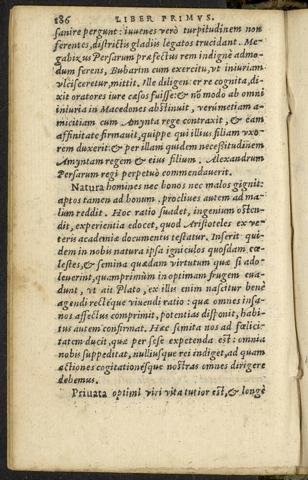 186 LIBER PRIMVS.
sanire pergunt: iuuenes verò turpitudinem non
ferentes, districtis gladiis legatos trucidant. Me-
gabizus Persarum præfectus rem indignè admo-
dum ferens, Bubarim cum exercitu, vt iniuriam
vlcisceretur, mittit. Ille diligenter re cognita, di-
xit oratores iure cæsos fuisse: & nõ modò ab omni
iniuria in Macedones abstinuit, verùmetiam a-
micitiam cum Amynta rege contraxit, & eam
affinitate firmauit, quippe qui illius filiam vxo-
rem duxerit: & per illam quidem necessitudinem
Amyntam regem & eius filium Alexandrum
Persarum regi perpetuò commendauerit.
Natura homines nec bonos nec malos gignit:
aptos tamen ad bonum, procliues autem ad ma-
lum reddit. Hoc ratio suadet, ingenium osten-
dit, experientia edocet, quod Aristoteles ex ve-
teris academiæ documentis testatur. Inserit qui-
dem in nobis natura ipsa igniculos quosdam cæ-
lestes, & semina quædam virtutum quæ si ado-
leuerint, quamprimùm in optimam frugem eua-
dunt, vt ait Plato, ex illis enim nascitur bene
agendi rectéque viuendi ratio: quæ omnes insa-
nos affectus comprimit, potentias disponit, habi-
tus autem confirmat. Hæc semita nos ad fœlici-
tatem ducit, quæ per sese expetenda est: omnia
nobis suppeditat, nulliusque rei indiget, ad quam
actiones cogitationésque nostras omnes dirigere
debemus.
Priuata optimi viri vita tutior est, & longè